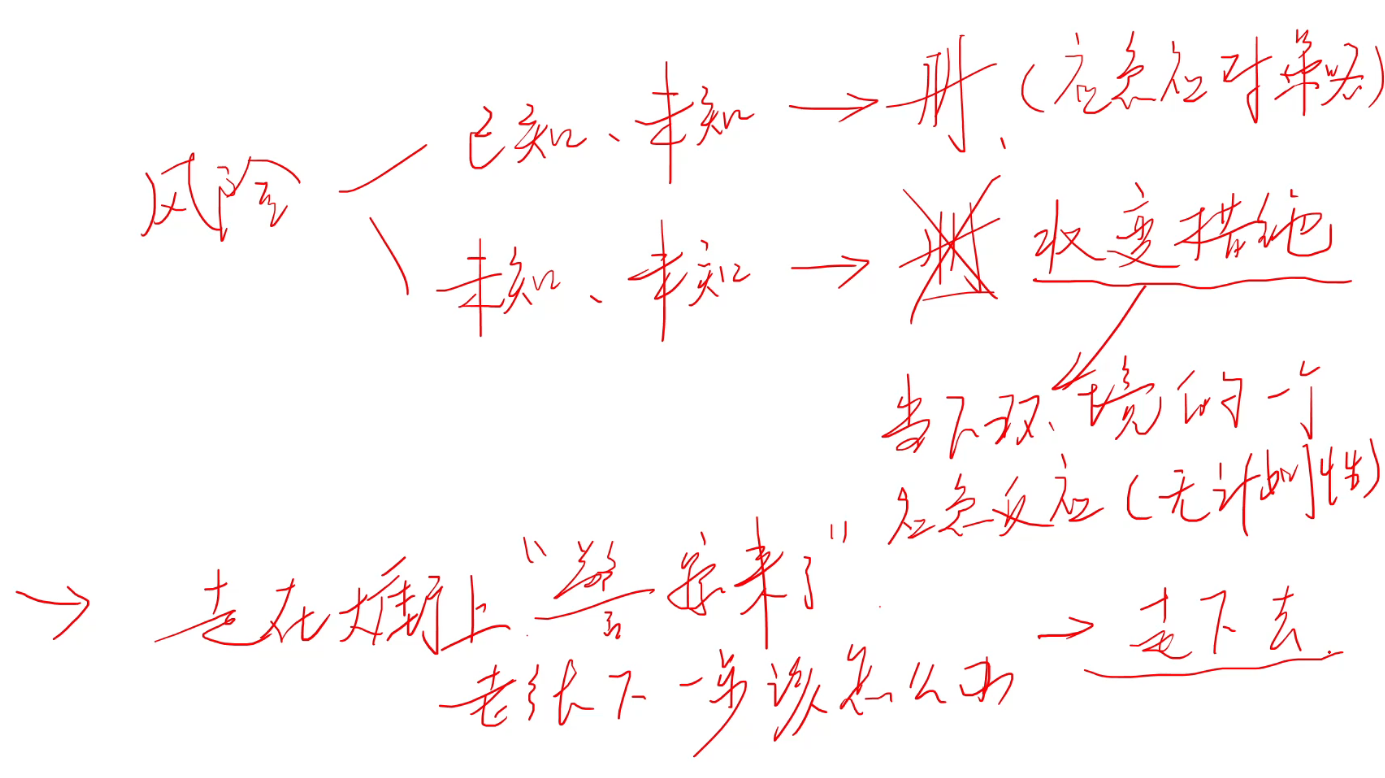 风险
已知、未知 → 册、(应急应对策略)
未知、未知 → 册 权变措施
当下环境的一个
应急反应(无计划性)
→ 走在大街上“警察来了”
老张下一步该怎么办 → 走下去.